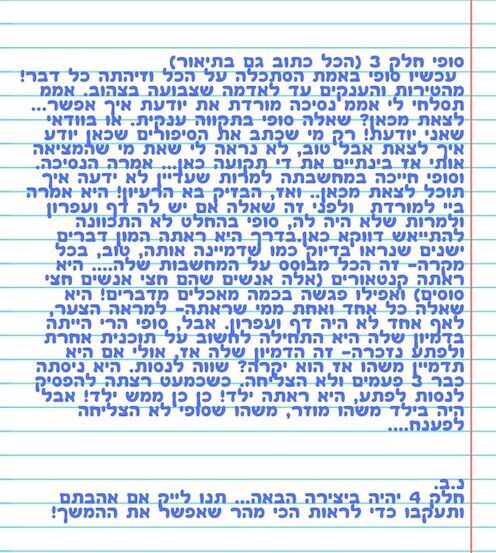 סופי חלק 3 (הכל כתוב גם בתיאור)
עכשיו סופי באמת הסתכלה על הכל וזיהתה כל דבר!
מהטירות והענקים עד לאדמה שצבועה בצהוב. אממ
תסלחי לי אממ נסיכה מורדת את יודעת איך אפשר...
לצאת מכאן? שאלה סופי בתקווה ענקית. או בוודאי
שאני יודעת! רק מי שכתב את הסיפורים שכאן יודע
איך לצאת אבל טוב, לא נראה לי שאת מי שהמציאה
אותי אז בינתיים את די תקועה כאן... אמרה הנסיכה.
וסופי חייכה במחשבתה למרות שעדיין לא ידעה איך
תוכל לצאת מכאן.. ואז, הבזיק בא הרעיון! היא אמרה
ביי למורדת  ולפני זה שאלה אם יש לה דף ועפרון
ולמרות שלא היה לה, סופי בהחלט לא התכוונה
להתייאש דווקא כאן.בדרך היא ראתה המון דברים
ישנים שנראו בדיוק כמו שדמיינה אותה, טוב, בכל
מקרה- זה הכל מבוסס על המחשבות שלה.... היא
ראתה קנטאורים (אלה אנשים שהם חצי אנשים חצי
סוסים) ואפילו פגשה בכמה מאכלים מדברים! היא
שאלה כל אחד ואחת ממי שראתה- למראה הצער,
לאף אחד לא היה דף ועפרון. אבל, סופי הרי הייתה
בדמיון שלה היא התחילה לחשוב על תוכנית אחרת
ולפתע נזכרה- זה הדמיון שלה אז, אולי אם היא
תדמיין משהו אז הוא יקרה? שווה לנסות. היא ניסתה
כבר 3 פעמים ולא הצליחה. כשכמעט רצתה להפסיק
לנסות לפתע, היא ראתה ילד! כן כן ממש ילד! אבל
היה בילד משהו מוזר, משהו שסופי לא הצליחה
לפענח....
נ.ב.
חלק 4 יהיה ביצירה הבאה... תנו לייק אם אהבתם
ותעקבו כדי לראות הכי מהר שאפשר את ההמשך!